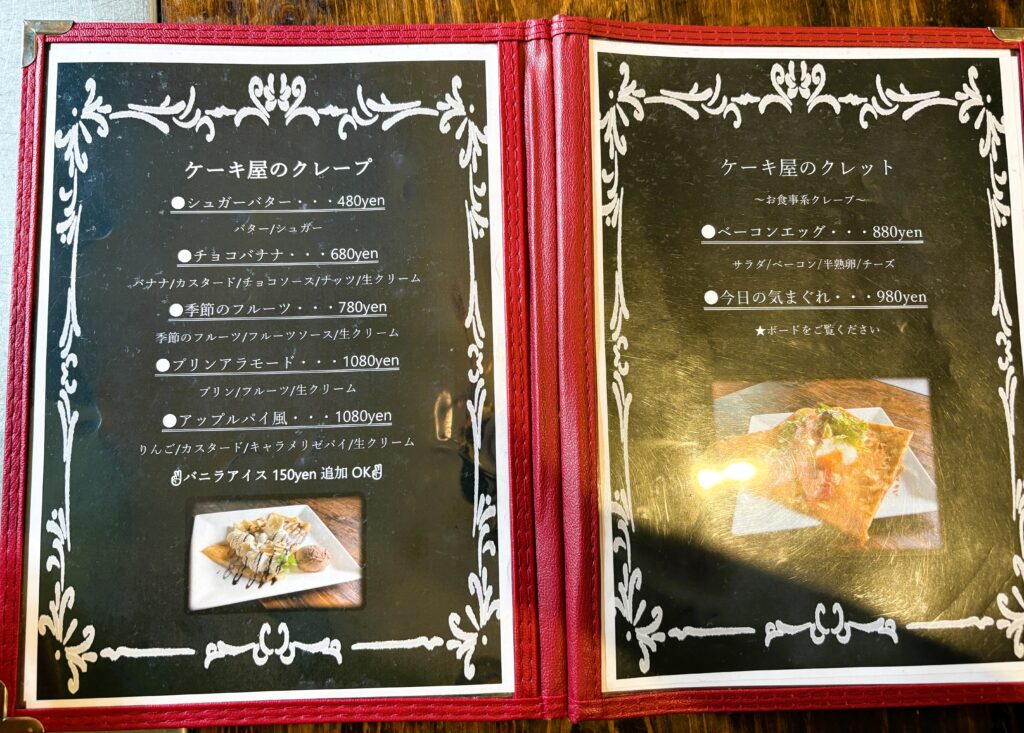 ケーキ屋のクレープ
●シュガーバター・・・480yen
バター/シュガー
●チョコバナナ・・・680yen
バナナ/カスタード/チョコソース/ナッツ/生クリーム
●季節のフルーツ・・・780yen
季節のフルーツ/フルーツソース/生クリーム
●プリンアラモード・・・1080yen
プリン/フルーツ/生クリーム
●アップルパイ風・・・1080yen
りんご/カスタード/キャラメリゼパイ/生クリーム
✌バニラアイス 150yen 追加 OK✌
ケーキ屋のクレット
～お食事系クレープ～
●ベーコンエッグ・・・880yen
サラダ/ベーコン/半熟卵/チーズ
●今日の気まぐれ・・・980yen
★ボードをご覧ください